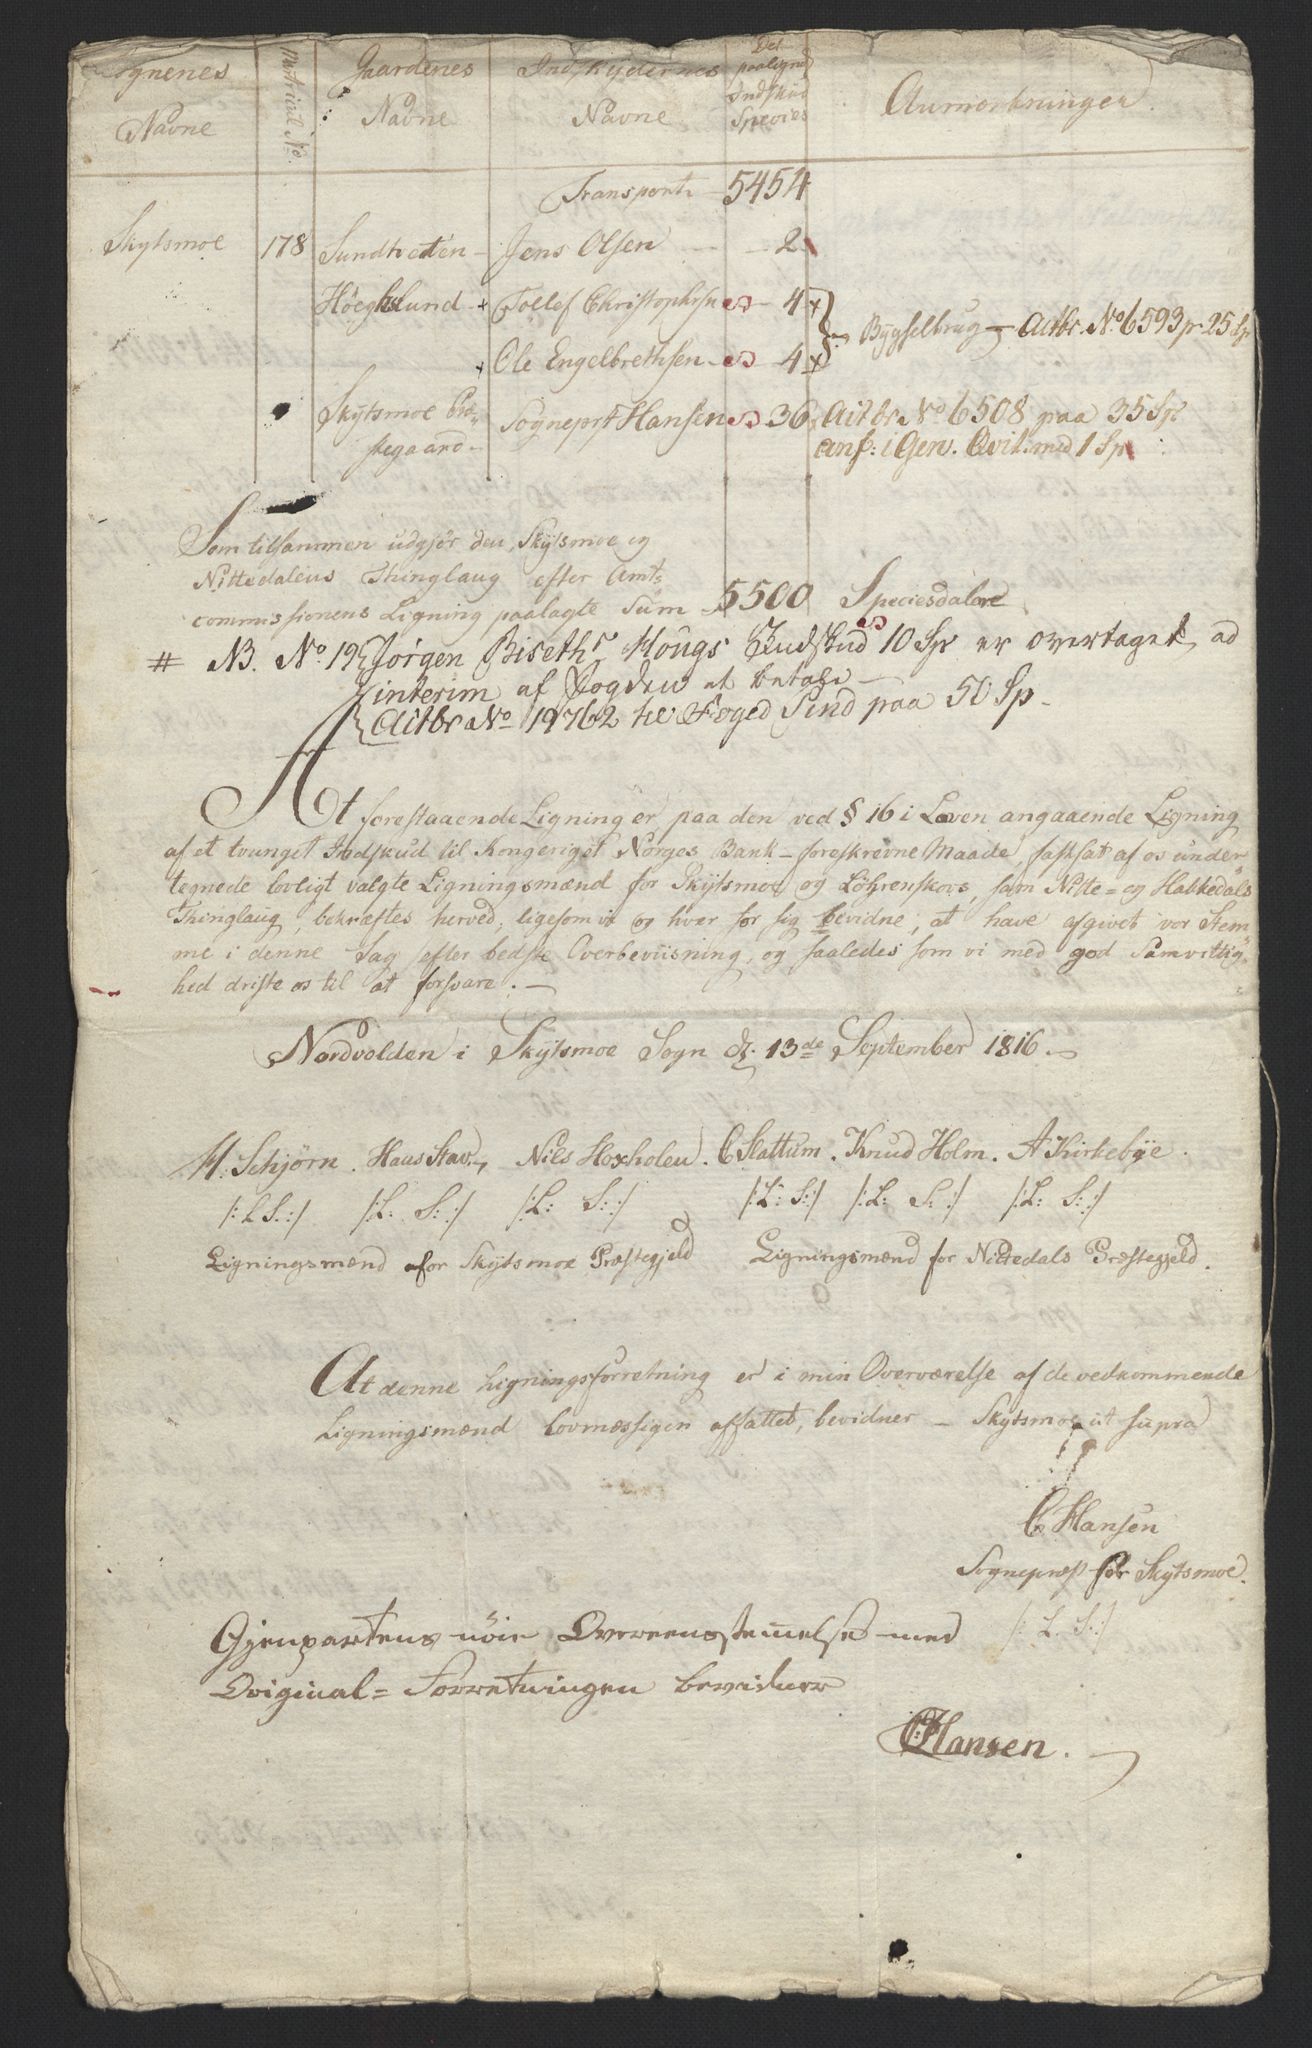 Sognenes Navne | Matricul No. | Gaardenes Navne | Indskydernes Navne | Det paalignede Indskud Species | Anmærkninger.
Transport 5454
Skytsmoe 178 Sundtvedten - Jens Olsen - 2
Höeghslund + Tollef Christophersen 4 + } Bygselbrug - Actbr. No 6593 p. 25 Sp
+ Ole Engelbrethsen - 4 +
Skytsmoe Præ= Sogneprst Hansen 36 Actbr No 6508 paa 35 Sp
stegaard - anf: i Gen. Qvit. med 1 Sp
Som tilsammen udgjör den, Skytsmoe og
Nittedalens Thinglaug efter Amt=
commissionens Ligning paalagte Sum 5500 Speciesdalere
# NB. No 19 Jörgen Biseth Hougs Indskud 10 Sp er overtaget ad
interim af Fogden at betale -
Actbr No 19762 Foged Lind paa 50 Sp -
At forestaaende Ligning er paa den ved § 16 i Loven angaaende Ligning
af et tvunget Indskud til Kongeriget Norges Bank - foreskrevne Maade, fastsat af os under
tegnede lovligt valgte Ligningsmænd for Skytsmoe og Löhrenskovs, sam Nitte= og Hakkedals
Thinglaug, bekræftes herved; ligesom vi og hver for sig bevidne, at have afgivet vor Stem
me i denne Sag efter bedste Overbeviisning, og saaledes som vi med god Samvittig=
hed driste os til at forsvare. -
Nordvolden i Skytsmoe Sogn d. 13de September 1816 -
H. Schjörn. Hans Stav, Nils Hoxholen. C Slattum. Knud Holm. A Kirkebye.
/: L S.:/ /: L. S.:/ /: L: S:/ /: L: S:/ /: L: S:/ /: L: S:/
Ligningsmænd for Skytsmoe Præstegjeld Ligningsmænd for Nittedals Præstegjeld.
At denne Ligningsforretning er i min Overværelse af de vedkommende
Ligningsmænd lovmæssigen affattet, bevidner - Skytsmoe ut supra
C Hansen
Sogneprest for Skytsmoe.
/: L. S:/
Gjenpartens nöie Overeensstemmelse med
Original= Forretningen bevidner
CHansen.